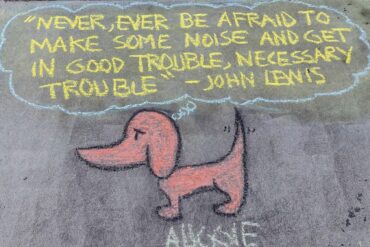 "NEVER, EVER BE AFRAID TO
MAKE SOME NOISE AND GET
IN GOOD TROUBLE, NECESSARY
TROUBLE" - JOHN LEWIS